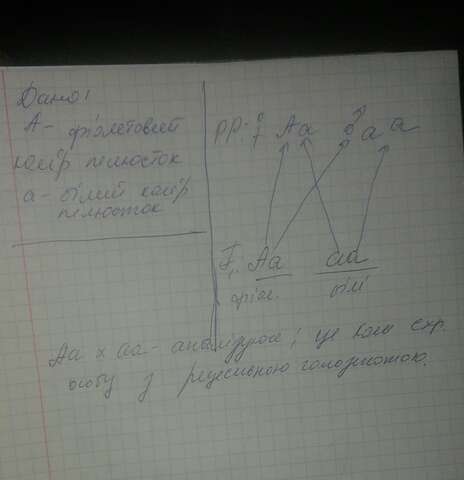 Дано:
А - фіолетовий
колір пелюсток
а - білий колір
пелюсток
РР: ♀ Аа ♂ а а
F₁: Аа аа
фіол. білі
Аа х аа - аналізуюче, це коли схр.
особу з рецесивною гомозиготою.